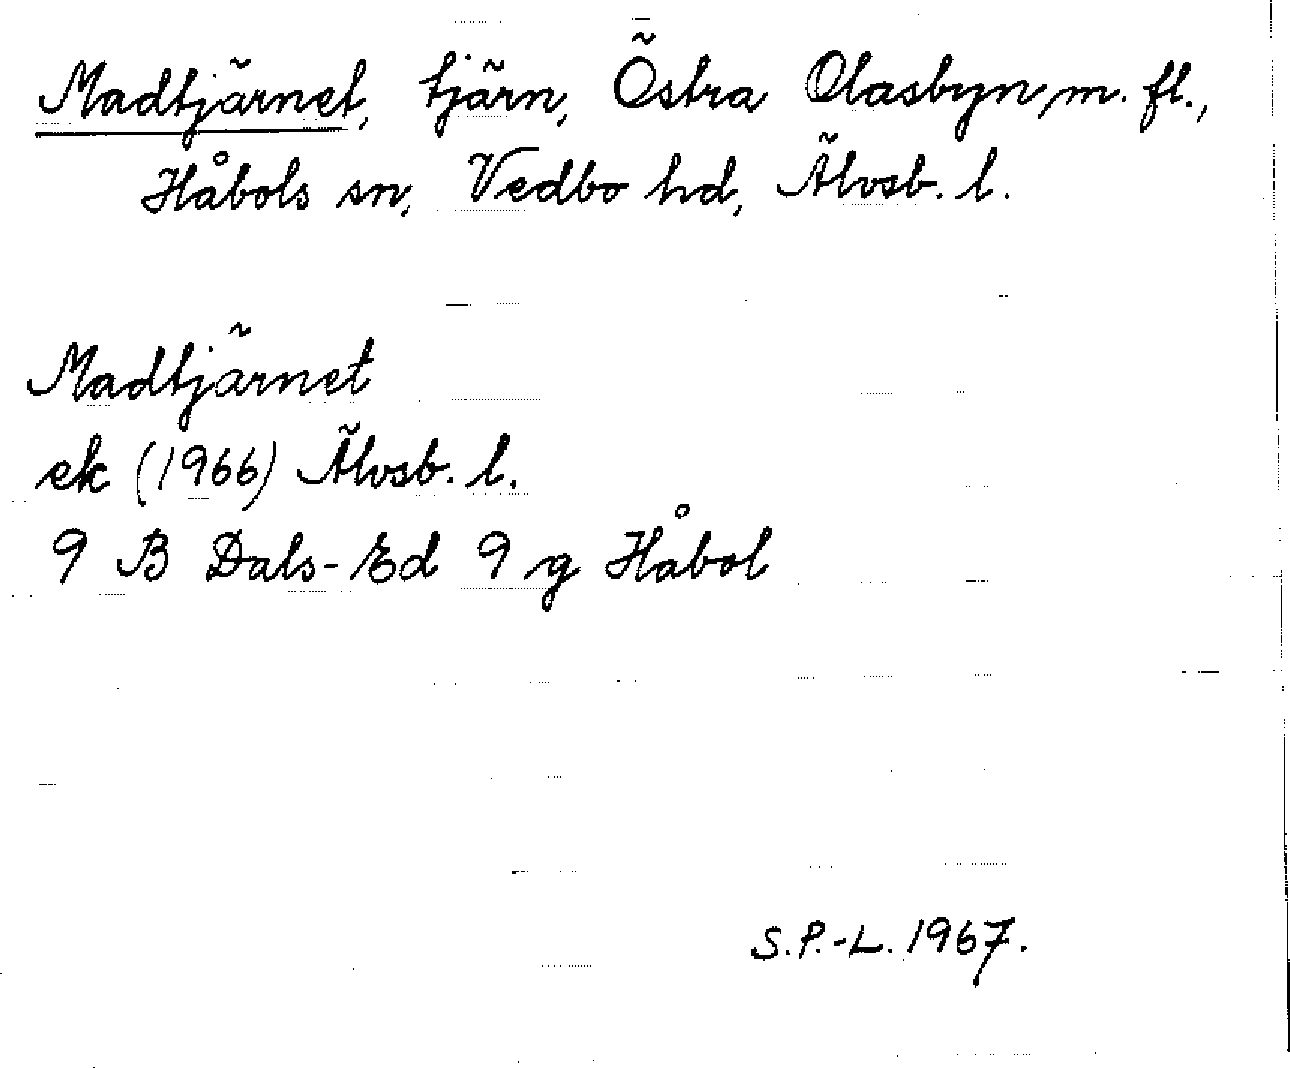 Madtjärnet, tjärn, Östra Olasbyn m. fl.,
Håbols sn, Vedbo hd, Älvsb. l.
Madtjärnet
ek (1966) Älvsb. l.
9 B Dals-Ed 9 g Håbol
S.P.-L. 1967.